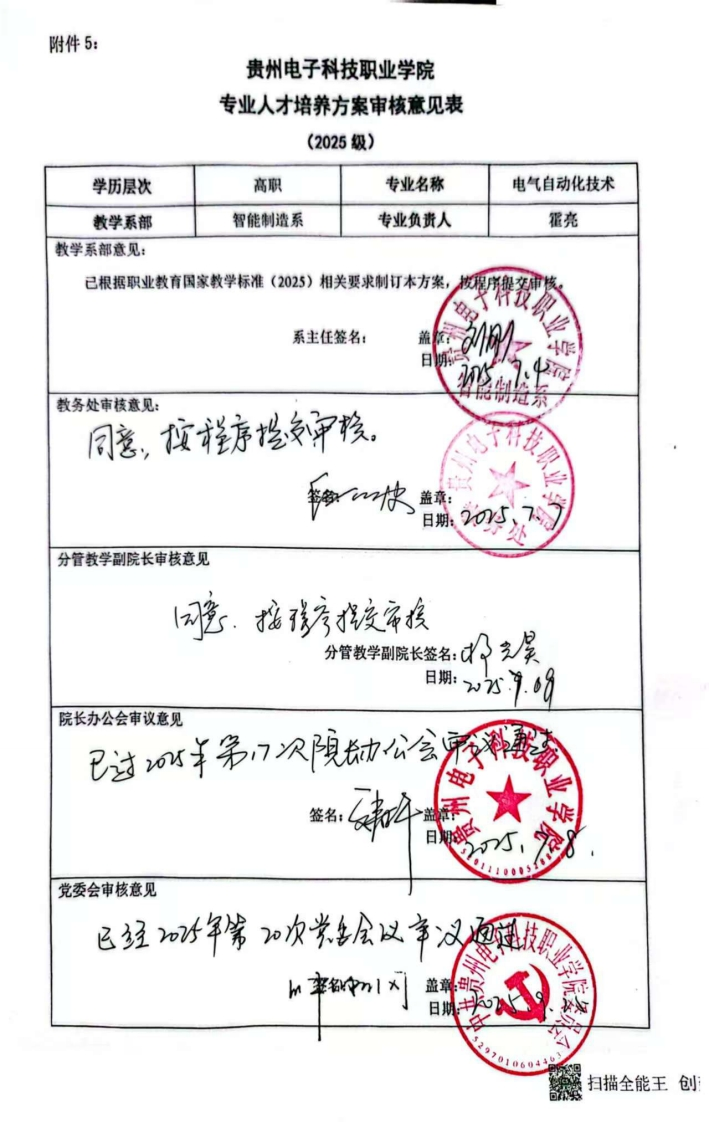 附件 5：
贵州电子科技职业学院
专业人才培养方案审核意见表
（2025 级）
学历层次 高职 专业名称 电气自动化技术
教学系部 智能制造系 专业负责人 霍亮
教学系部意见：
已根据职业教育国家教学标准（2025）相关要求制订本方案，按程序提交审核。
系主任签名： 盖章：
日期： 2025.7.4
贵州电子科技职业学院
智能制造系
教务处审核意见：
同意，按程序提交审核。
签名： 盖章：
日期： 2025.7.7
贵州电子科技职业学院
教务处
分管教学副院长审核意见
同意．按程序提交审核
分管教学副院长签名：
日期：
院长办公会审议意见
已过2025年第17次院长办公会审议通过
签名： 盖章：
日期： 2025.
贵州电子科技职业学院
党委会审核意见
已经2025年第20次党委会议审议通过
签名 盖章：
日期： 2025.9.
中共贵州电子科技职业学院委员会
扫描全能王 创